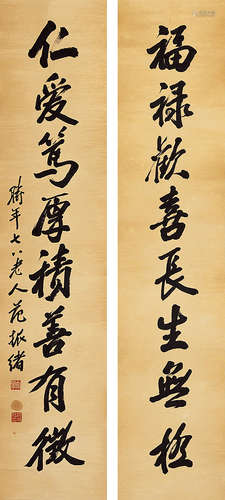 福禄歡喜長生無極
仁爱篤厚積善有徵
時年七八老人范振緒